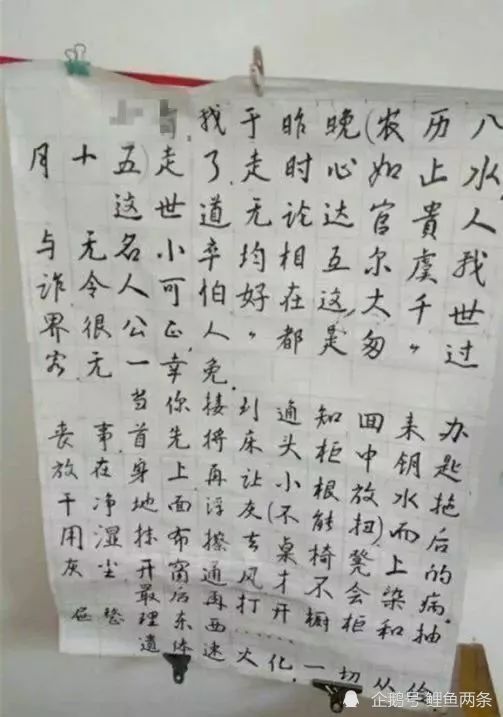 我于昨晚(农历八
月十五)走了,走时心如止水,
这世道无论达官貴人
与无名小卒均相互尔虞我
诈令人可怕,好在这大千世
界很公正,人〃都是匆〃过
客无一幸免.
当你接到通知回来办
丧事首先将床头柜中钥匙
放在身上再让小根放水拖
干净地面浮灰(不能扭)而后
用湿抹布擦去桌椅凳上的
灰尘开窗通风才不会染病.
最后再打开橱柜和抽
屉整理东西……
遗体速火化一切从俭
企鹅号 鲤鱼两条